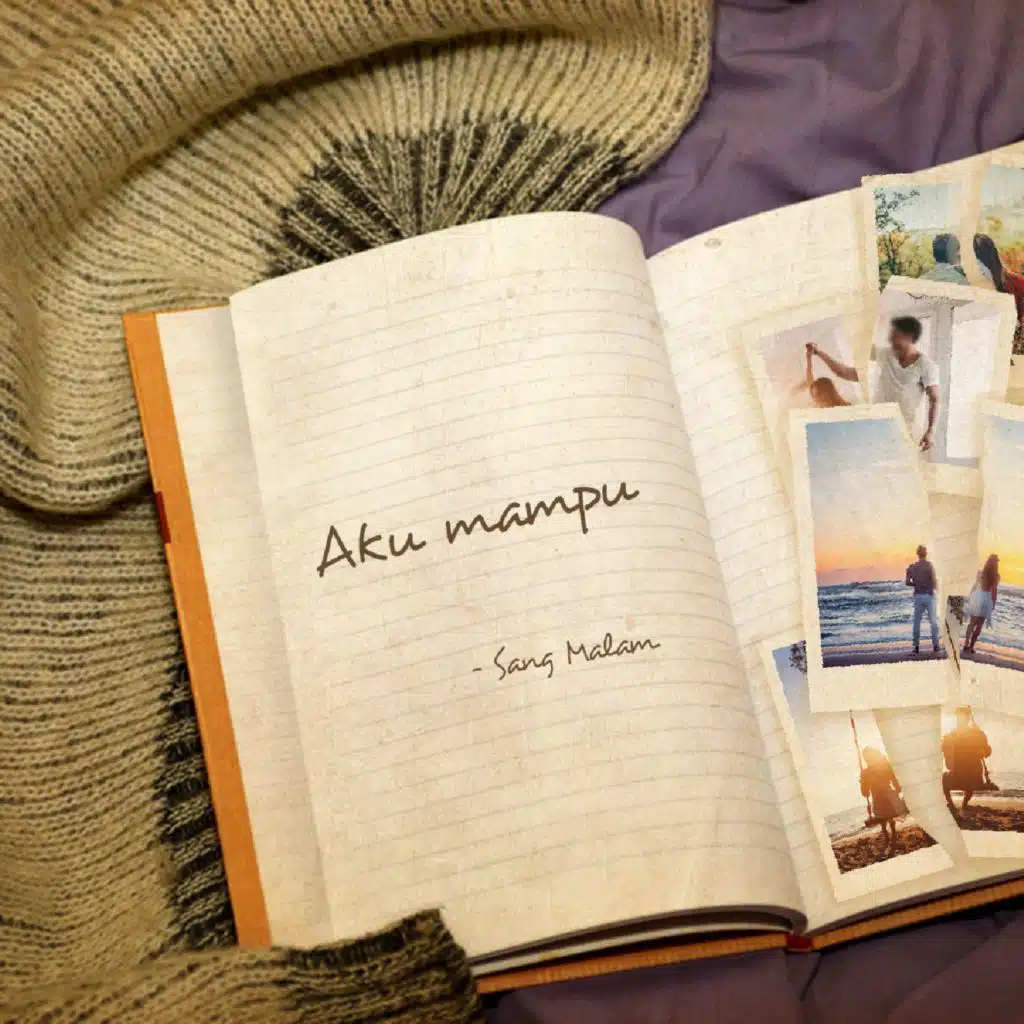 Aku mampu
- Sang Malam